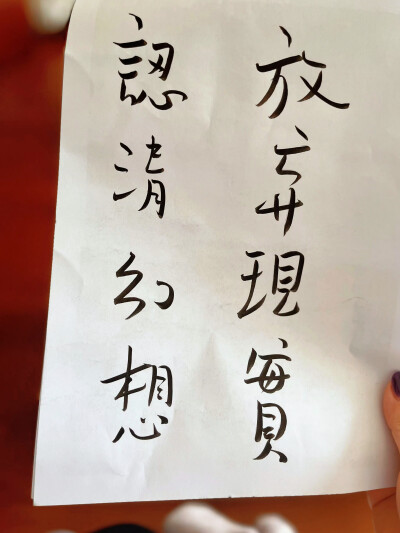 放弃現實
認清幻想